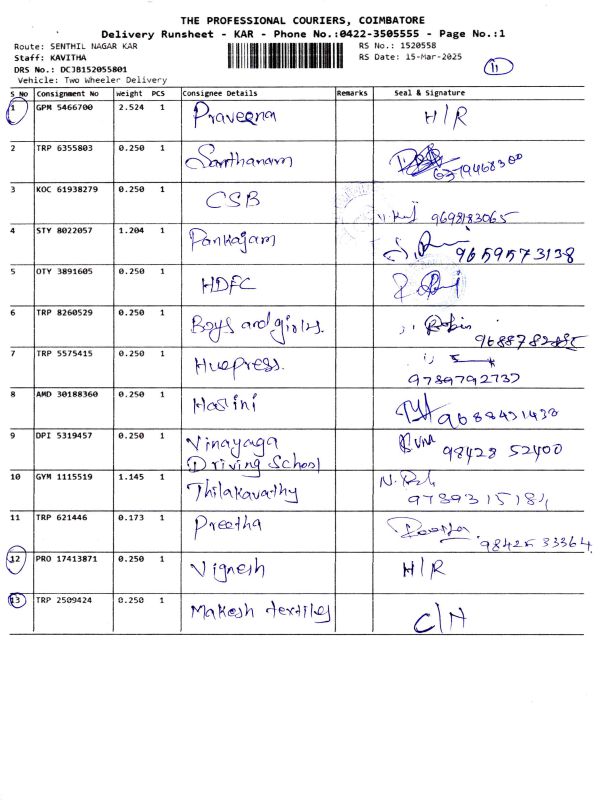 THE PROFESSIONAL COURIERS, COIMBATORE
Delivery Runsheet - KAR - Phone No.:0422-3505555 - Page No.:1
Route: SENTHIL NAGAR KAR RS No.: 1520558
Staff: KAVITHA RS Date: 15-Mar-2025
11
DRS No.: DCJB152055801
Vehicle: Two Wheeler Delivery
S_No Consignment No Weight PCS Consignee Details Remarks Seal & Signature
1 GPM 5466700 2.524 1 Praveena H/R
2 TRP 6355803 0.250 1 Santhanam 6379468300
3 KOC 61938279 0.250 1 CSB 9698183065
4 STY 8022057 1.204 1 Pankajam 9659573138
5 OTY 3891605 0.250 1 HDFC
6 TRP 8260529 0.250 1 Boys and girles. Robin
7 TRP 5575415 0.250 1 Huepress. 9789792737
8 AMD 30188360 0.250 1 Hasini 9688431430
9 DPI 5319457 0.250 1 Vinayaga 98428 52400
Driving School
10 GYM 1115519 1.145 1 Thilakavathy
11 TRP 621446 0.173 1 Preetha 9842533364
12 PRO 17413871 0.250 1 Vignesh H/R
13 TRP 2509424 0.250 1 Makesh textiles C/N